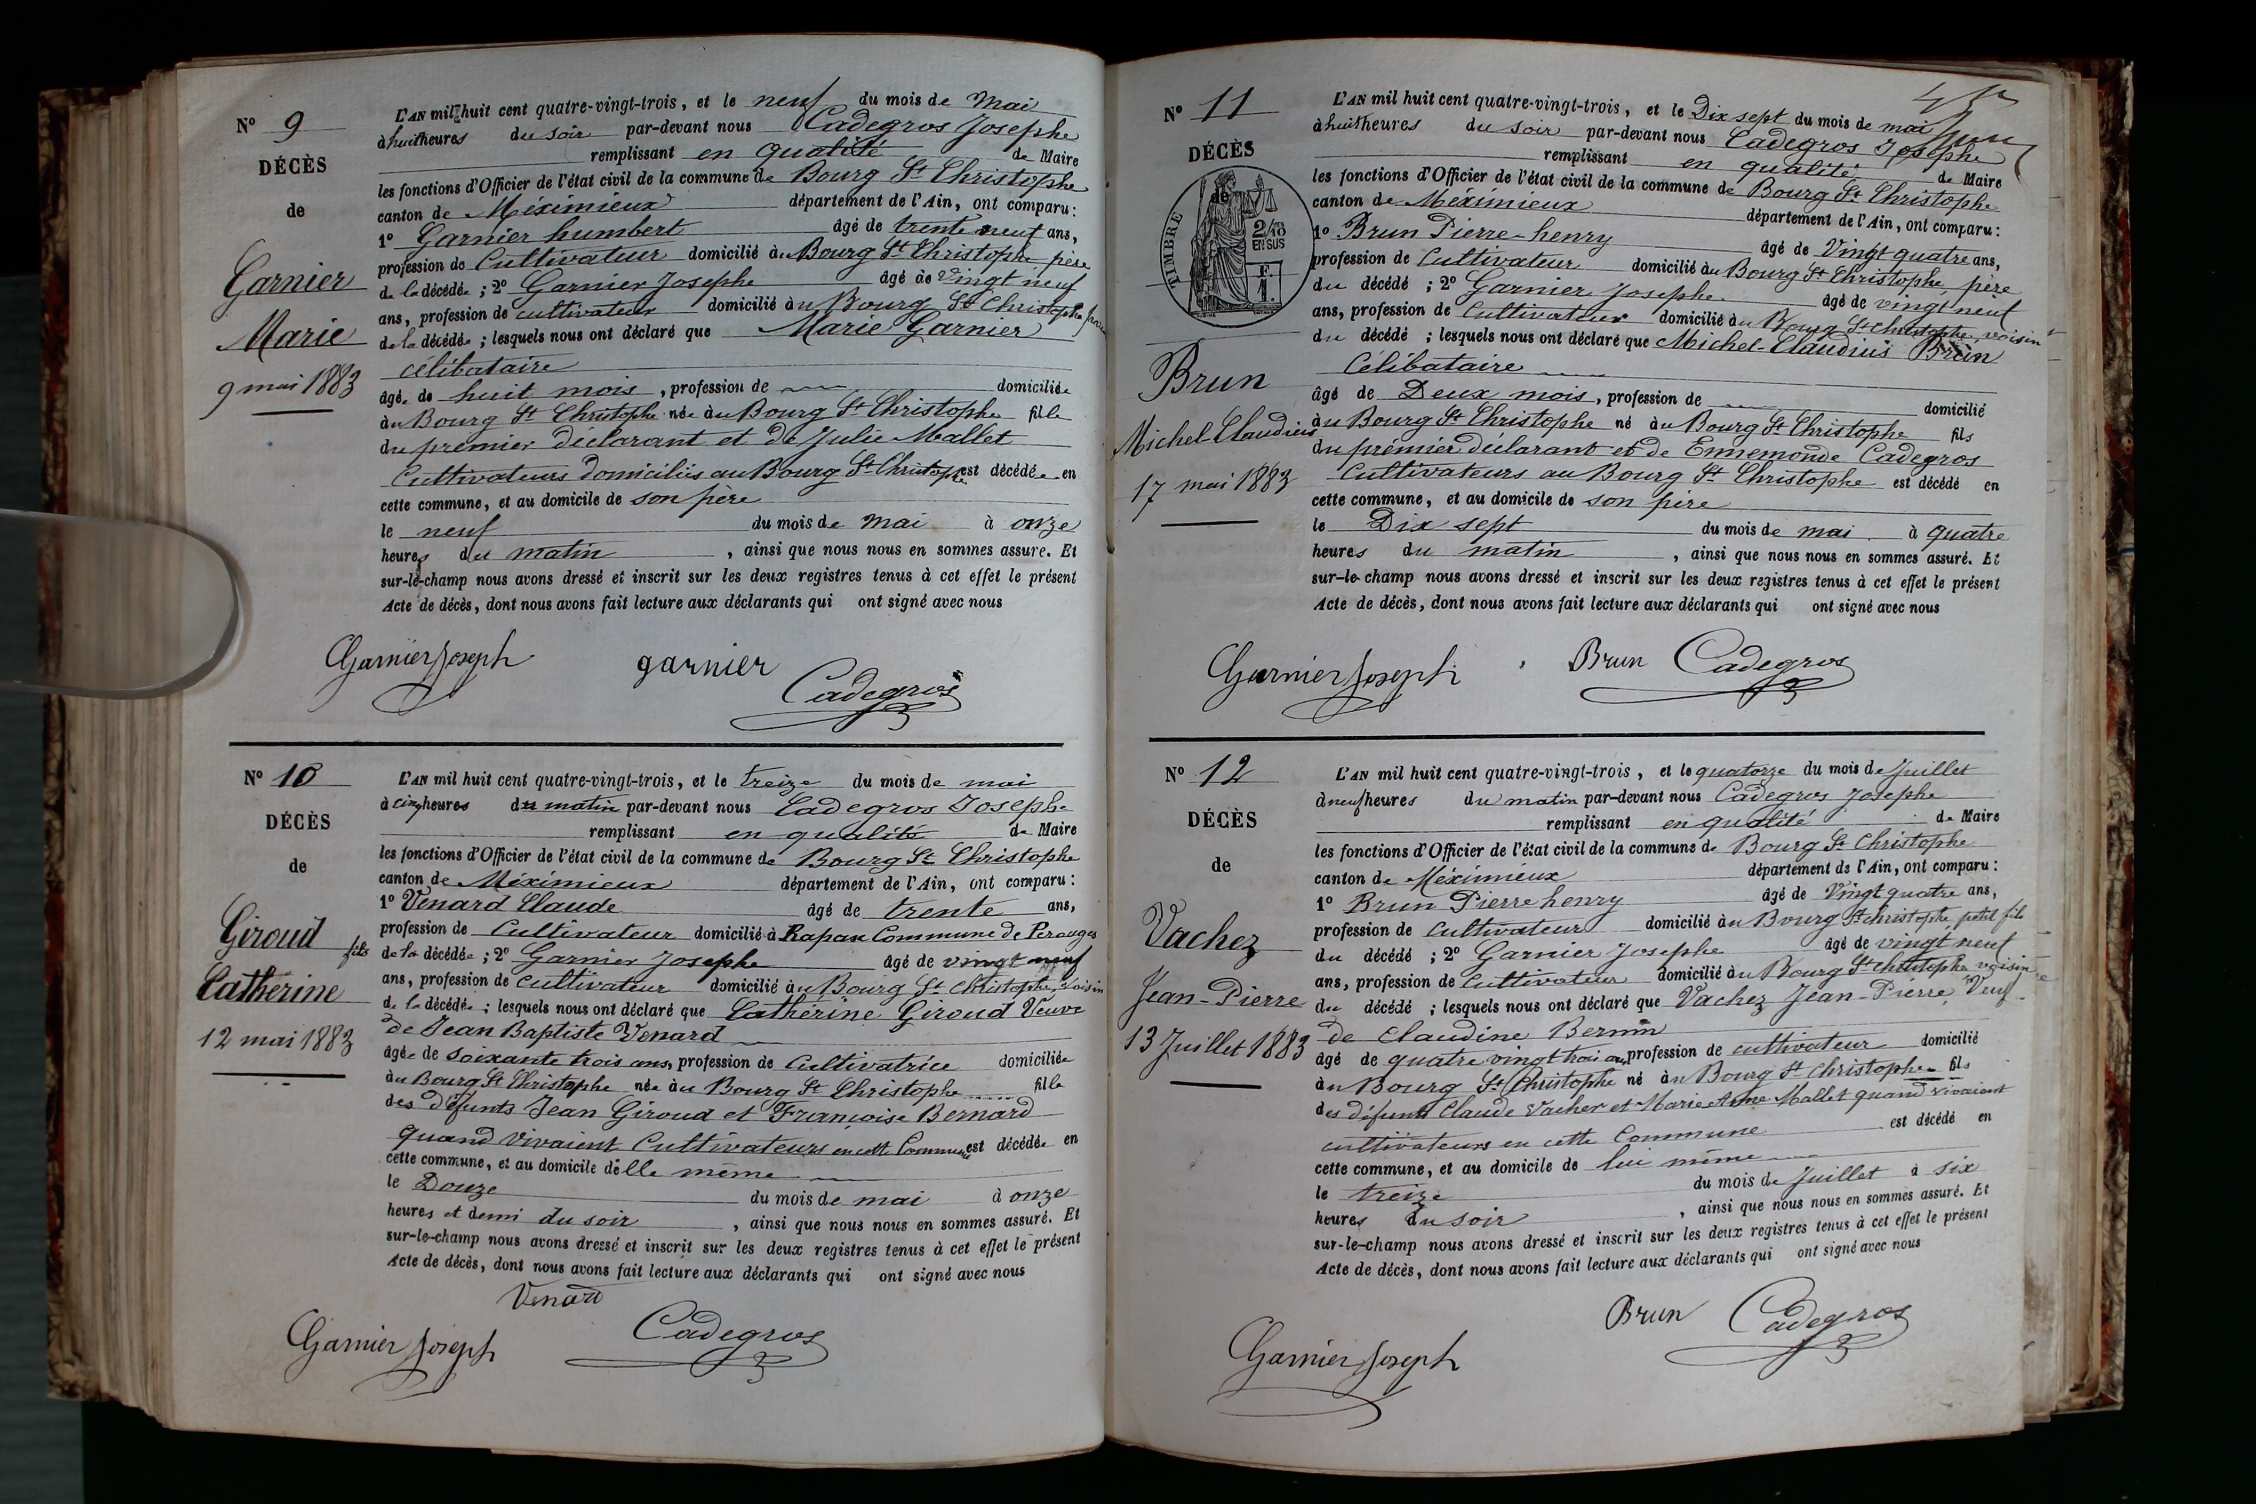 Nº 9
DÉCÈS
de
Garnier
Marie
9 mai 1883
L'AN mil huit cent quatre-vingt-trois, et le neuf du mois de Mai
à huit heures du soir par-devant nous Cadegros Josephe
remplissant en qualité de Maire
les fonctions d'Officier de l'état civil de la commune de Bourg St Christophe
canton de Méximieux département de l'Ain, ont comparu :
1º Garnier humbert âgé de trente neuf ans,
profession de Cultivateur domicilié au Bourg St Christophe père
de la décédée ; 2º Garnier Josephe âgé de vingt neuf
ans, profession de cultivateur domicilié au Bourg St Christophe
de la décédée ; lesquels nous ont déclaré que Marie Garnier
célibataire
âgée de huit mois, profession de domiciliée
au Bourg St Christophe née au Bourg St Christophe fille
du premier déclarant et de Julie Mallet
Cultivateurs domiciliés au Bourg St Christophe est décédée en
cette commune, et au domicile de son père
le neuf du mois de mai à onze
heures du matin, ainsi que nous nous en sommes assuré. Et
sur-le-champ nous avons dressé et inscrit sur les deux registres tenus à cet effet le présent
Acte de décès, dont nous avons fait lecture aux déclarants qui ont signé avec nous
Garnier Joseph garnier
Cadegros
Nº 10
DÉCÈS
de
Giroud
Catherine
12 mai 1883
L'AN mil huit cent quatre-vingt-trois, et le treize du mois de mai
à cinq heures du matin par-devant nous Cadegros Josephe
remplissant en qualité de Maire
les fonctions d'Officier de l'état civil de la commune de Bourg St Christophe
canton de Méximieux département de l'Ain, ont comparu :
1º Venard Claude âgé de trente ans,
profession de Cultivateur domicilié à Rapan Commune de Perouges
fils de la décédée ; 2º Garnier Josephe âgé de vingt neuf
ans, profession de cultivateur domicilié au Bourg St Christophe, voisin
de la décédée ; lesquels nous ont déclaré que Cathérine Giroud Veuve
de Jean Baptiste Venard
âgée de soixante trois ans, profession de Cultivatrice domiciliée
au Bourg St Christophe née au Bourg St Christophe fille
des défunts Jean Giroud et Françoise Bernard
quand vivaient Cultivateurs en cette Commune est décédée en
cette commune, et au domicile d'elle même
le Douze du mois de mai à onze
heures et demi du soir, ainsi que nous nous en sommes assuré. Et
sur-le-champ nous avons dressé et inscrit sur les deux registres tenus à cet effet le présent
Acte de décès, dont nous avons fait lecture aux déclarants qui ont signé avec nous
Venard
Garnier Joseph Cadegros
Nº 11
DÉCÈS
de
TIMBRE
2/10 EN SUS
F. 1.
Brun
Michel Claudius
17 mai 1883
L'AN mil huit cent quatre-vingt-trois, et le Dix sept du mois de mai
à huit heures du soir par-devant nous Cadegros Josephe
remplissant en qualité de Maire
les fonctions d'Officier de l'état civil de la commune de Bourg St Christophe
canton de Méximieux département de l'Ain, ont comparu :
1º Brun Pierre-henry âgé de Vingt quatre ans,
profession de Cultivateur domicilié au Bourg St Christophe père
du décédé ; 2º Garnier Josephe âgé de vingt neuf
ans, profession de Cultivateur domicilié au Bourg St Christophe, voisin
du décédé ; lesquels nous ont déclaré que Michel-Claudius Brun
Célibataire
âgé de Deux mois, profession de domicilié
au Bourg St Christophe né au Bourg St Christophe fils
du prémier déclarant et de Ennemonde Cadegros
Cultivateurs au Bourg St Christophe est décédé en
cette commune, et au domicile de son père
le Dix sept du mois de mai à quatre
heures du matin, ainsi que nous nous en sommes assuré. Et
sur-le-champ nous avons dressé et inscrit sur les deux registres tenus à cet effet le présent
Acte de décès, dont nous avons fait lecture aux déclarants qui ont signé avec nous
Garnier Joseph Brun Cadegros
Nº 12
DÉCÈS
de
Vachez
Jean-Pierre
13 Juillet 1883
L'AN mil huit cent quatre-vingt-trois, et le quatorze du mois de Juillet
à neuf heures du matin par-devant nous Cadegros Josephe
remplissant en qualité de Maire
les fonctions d'Officier de l'état civil de la commune de Bourg St Christophe
canton de Méximieux département de l'Ain, ont comparu :
1º Brun Pierre henry âgé de Vingt quatre ans,
profession de Cultivateur domicilié au Bourg St Christophe, petit fils
du décédé ; 2º Garnier Josephe âgé de vingt neuf
ans, profession de Cultivateur domicilié au Bourg St Christophe voisin
du décédé ; lesquels nous ont déclaré que Vachez Jean-Pierre, Veuf
de Claudine Bernin
âgé de quatre vingt trois ans profession de cultivateur domicilié
au Bourg St Christophe né au Bourg St Christophe fils
des défunts Claude Vacher et Marie Anne Mallet quand vivaient
cultivateurs en cette Commune est décédé en
cette commune, et au domicile de lui même
le treize du mois de Juillet à six
heures du soir, ainsi que nous nous en sommes assuré. Et
sur-le-champ nous avons dressé et inscrit sur les deux registres tenus à cet effet le présent
Acte de décès, dont nous avons fait lecture aux déclarants qui ont signé avec nous
Brun Cadegros
Garnier Joseph